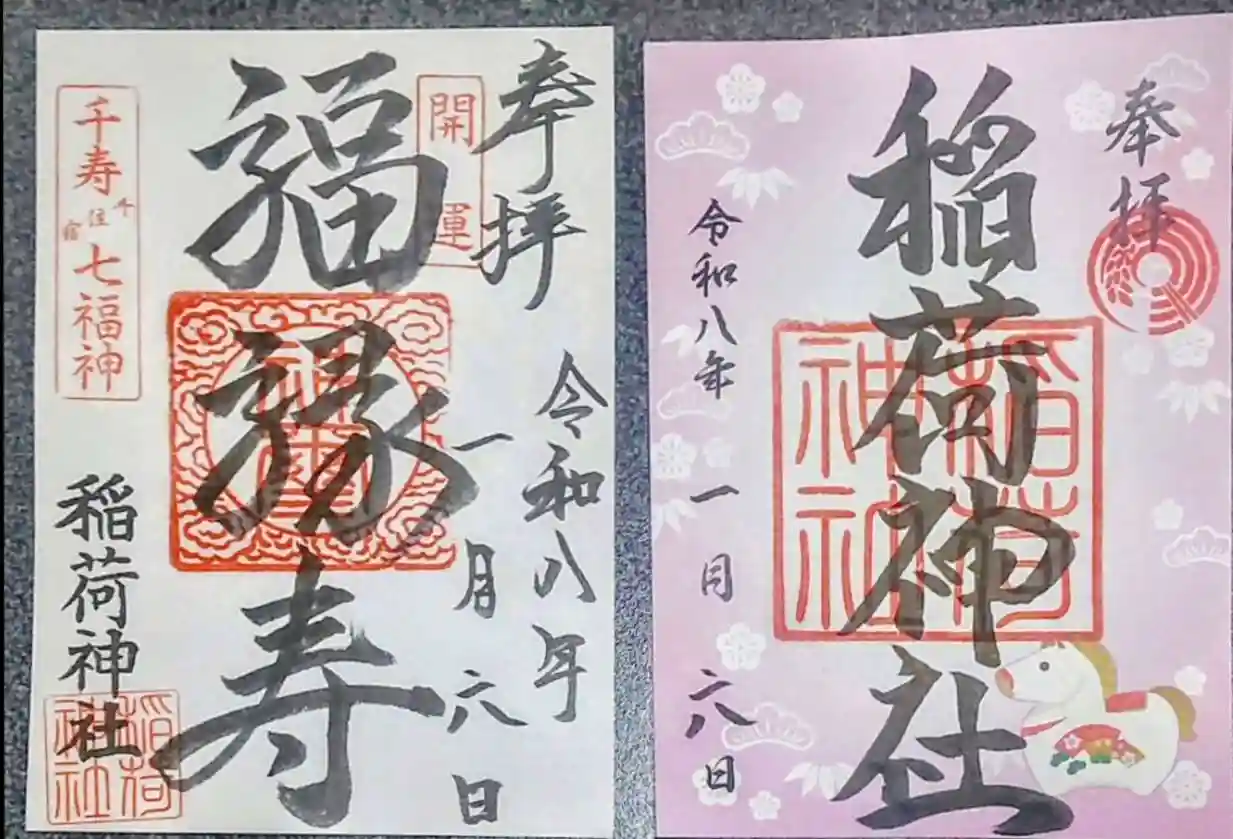 奉拝
開運
令和八年
一月六日
福縁寿
千寿
千住宿
七福神
稲荷神社
稲荷神社
奉拝
稲荷神社
稲荷神社
令和八年一月六日